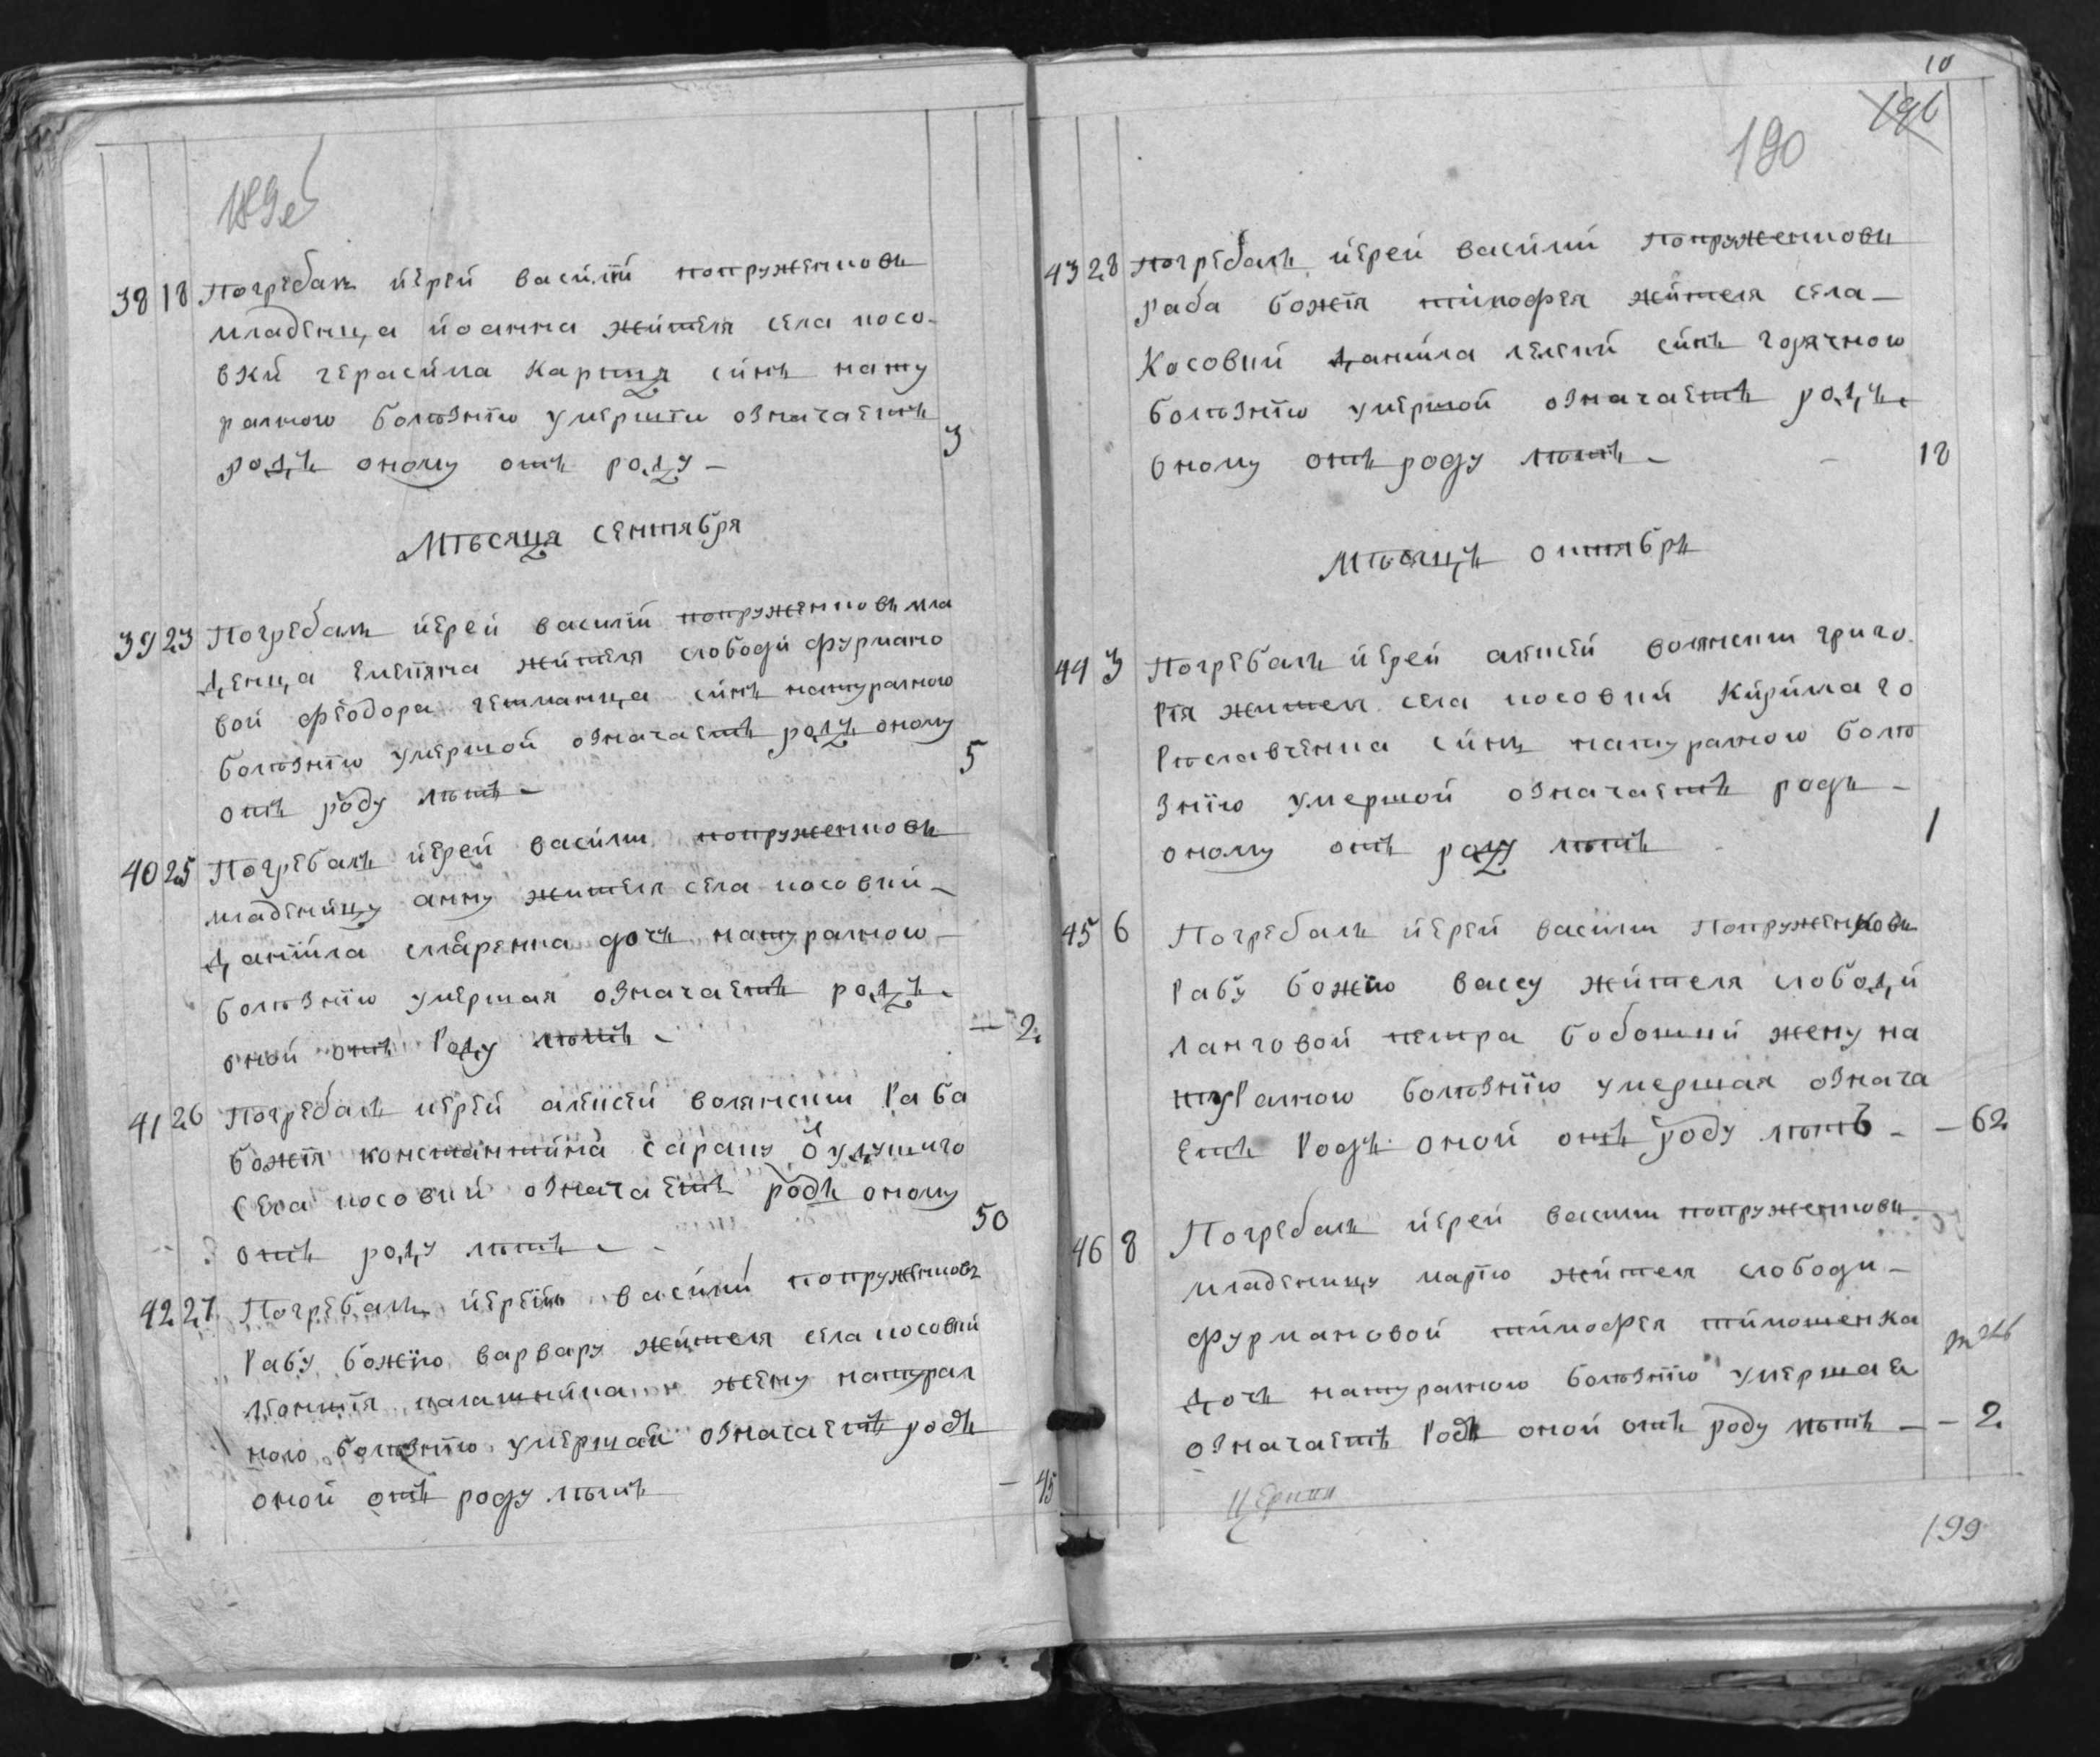 189об
38 18 Погребалъ йерей васйлїй попруженковъ
младенца йоанна жйтеля села косо-
вкй герасйма карпця сйнъ нату
ралною болѣзнїю умершїи означаетъ
родъ оному отъ роду – 3
Мѣсяца сентября
39 23 Погребалъ йерей василїй попруженковъ мла
денца емепяна жйтеля слободй фурмано
вой феодора гетманца сйнъ натуралною
болѣзнїю умершой означаетъ родъ оному
отъ роду лѣтъ – 5
40 25 Погребалъ йерей васйлїи попруженковъ
младенйцу анну жителя села косовкй –
данїйла сларенка дочъ натуралною –
болѣзнїю умершая означаетъ родъ
оной отъ роду лѣтъ – 2
41 26 Погребалъ иерей алексей волянскїи раба
божїя константйна
села косовкй означаетъ родъ оному
отъ роду лѣтъ – 50
42 27 Погребалъ йерей васйлїй попруженковъ
рабу божїю варвару жйтеля села косовкй
жену натурал
ною болѣзнїю умершаи означаетъ родъ
оной отъ роду лѣтъ – 45
10
196
190
43 28 Погребалъ йерей васйлий попруженковъ
раба божїя тймофея жйтеля села –
Косовкй данйла лелекй сйнъ горячною
болѣзнїю умершой означаетъ родъ
оному отъ роду лѣтъ – 18
Мѣсяцъ октябръ
44 3 Погребалъ йерей алексей волянскїи григо
рїя жителя села косовкй Кйрйла го
рославченка сйнъ натуралною болѣ
знїю умершой означаетъ родъ –
оному отъ роду лѣтъ 1
45 6 Погребалъ йерей васйлїи попруженковъ
рабу божїю вассу жйтеля слободй
ланговой петра бобошкй жену на
туралною болѣзнїю умершая означа
етъ родъ оной отъ роду лѣтъ – 62
46 8 Погребалъ йерей васйлїи попруженковъ
младеницу марїю жйтеля слободи –
фурмановой тймофея тймошенка
дочъ натуралною болѣзнїю умершаа
означаетъ родъ оной отъ роду лѣтъ – 2
199